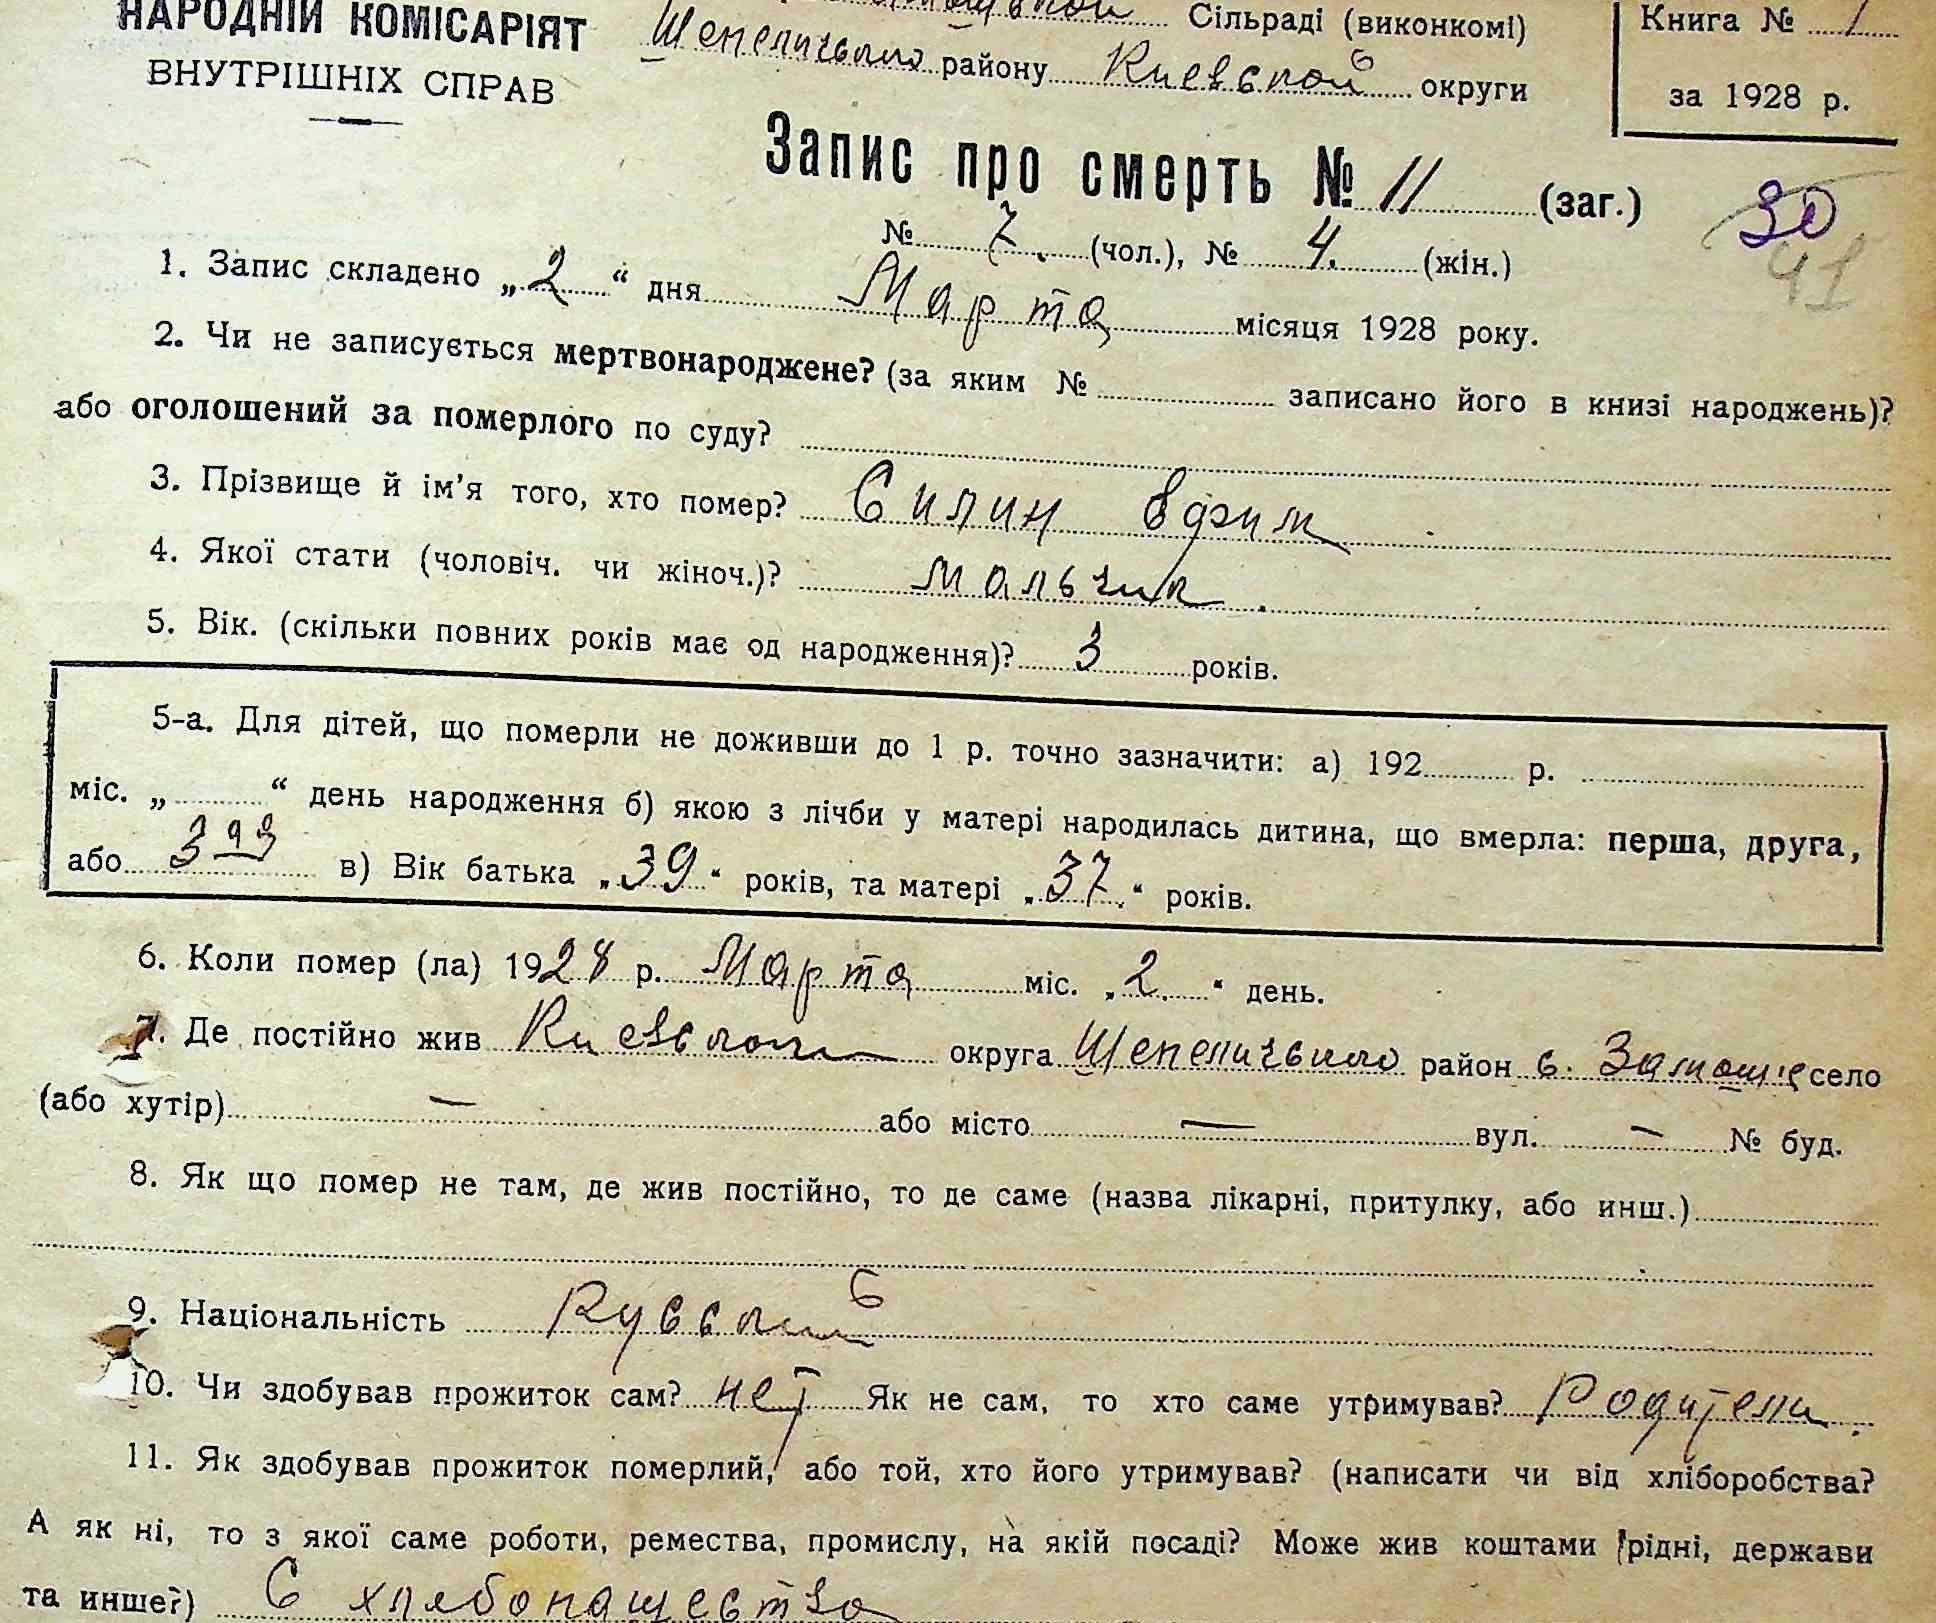 НАРОДНІЙ КОМІСАРІЯТ
ВНУТРІШНІХ СПРАВ
Сільраді (виконкомі)
Шепеличского району Киевской округи
Книга № 1
за 1928 р.
Запис про смерть № 11 (заг.)
30
41
№ 7. (чол.), № 4. (жін.)
1. Запис складено „2“ дня Марта місяця 1928 року.
2. Чи не записується мертвонароджене? (за яким № записано його в книзі народжень)?
або оголошений за померлого по суду?
3. Прізвище й ім'я того, хто помер? Силин Ефим
4. Якої стати (чоловіч. чи жіноч.)? мальчик.
5. Вік. (скільки повних років має од народження)? 3 років.
5-а. Для дітей, що померли не доживши до 1 р. точно зазначити: а) 192 р.
міс. „ “ день народження б) якою з лічби у матері народилась дитина, що вмерла: перша, друга,
або в) Вік батька „39“ років, та матері „37.“ років.
6. Коли помер (ла) 1928 р. Марта міс. „2.“ день.
7. Де постійно жив Киевской округа Шепеличского район с. село
(або хутір) — або місто — вул. — № буд.
8. Як що помер не там, де жив постійно, то де саме (назва лікарні, притулку, або инш.)
9. Національність Русский
10. Чи здобував прожиток сам? нет Як не сам, то хто саме утримував? Родители.
11. Як здобував прожиток померлий, або той, хто його утримував? (написати чи від хліборобства?
А як ні, то з якої саме роботи, ремества, промислу, на якій посаді? Може жив коштами рідні, держави
та инше?) С хлебопашества